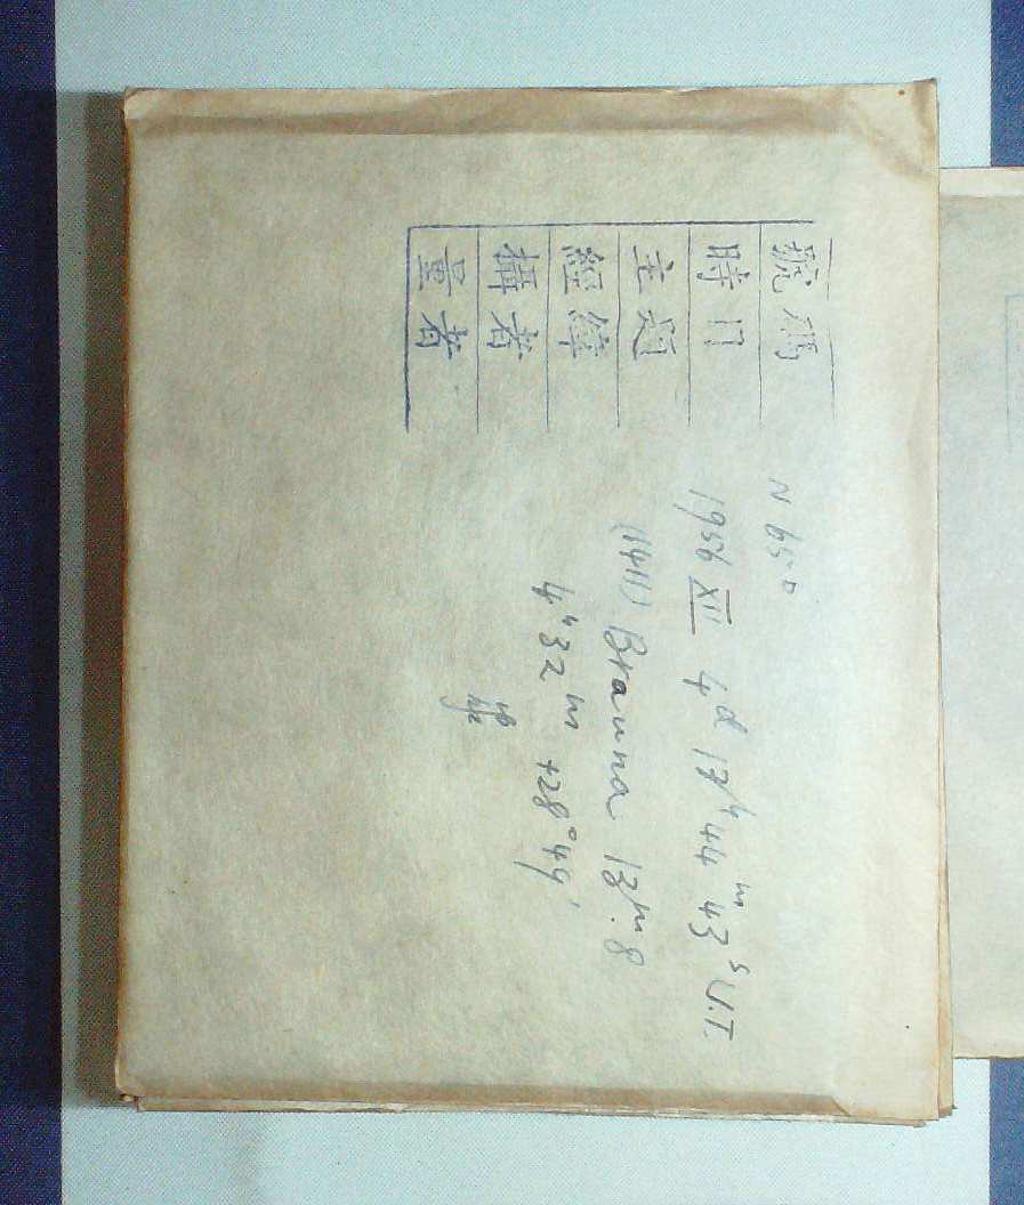 號碼 N 650
時日 1956 XII 4ᵈ 17ʰ 44ᵐ 43ˢ U.T.
主題 (1411) Brauna 13ᵐ.8
經緯 4ʰ32ᵐ +28°49′
攝者
量者